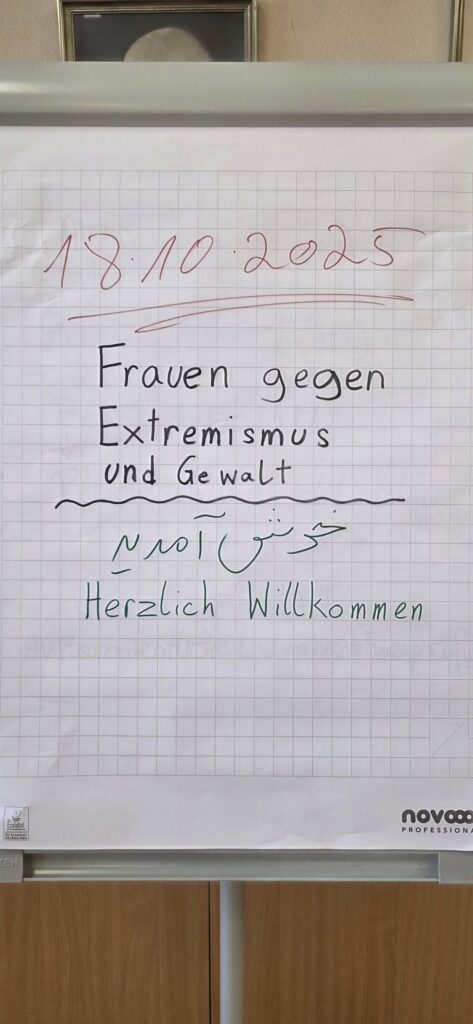 18.10.2025
Frauen gegen
Extremismus
und Gewalt
خوش آمدید
Herzlich Willkommen
novooo
PROFESSIONA